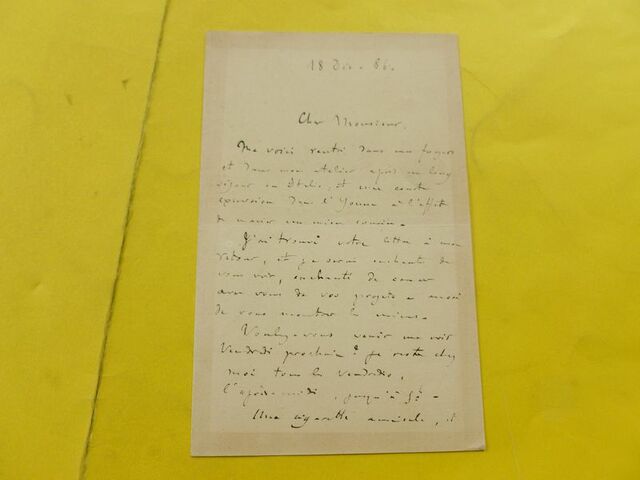 18 Dec. 86.
Cher Monsieur,
Me voici rentré dans mes foyers
et dans mon atelier après un long
séjour en Italie, et une courte
excursion dans l'Yonne à l'effet
de marier un mien cousin.
J'ai trouvé votre lettre à mon
retour, et je serai enchanté de
vous voir, enchanté de causer
avec vous de vos projets et aussi
de vous montrer les miens.
Voulez-vous venir me voir
Vendredi prochain ? je reste chez
moi tous les vendredis,
l'après-midi, jusqu'à 5h -
Une cigarette amicale, et